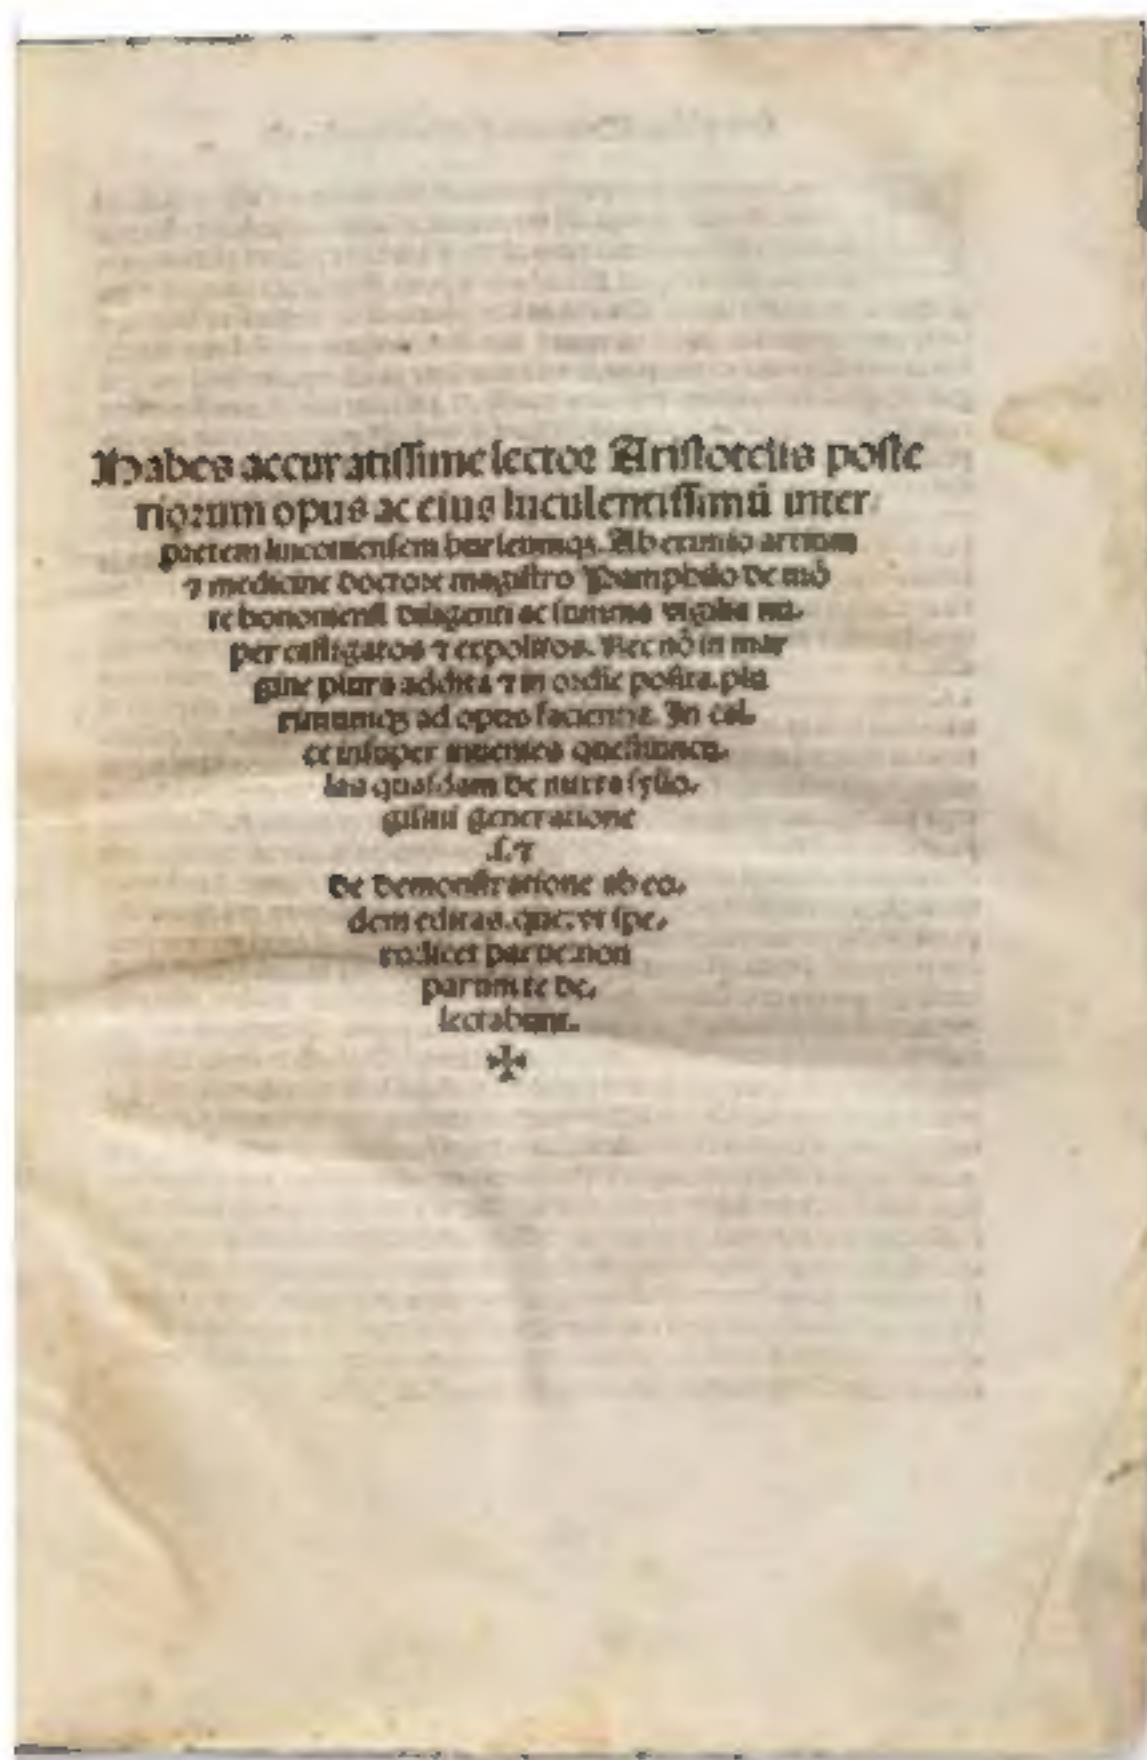 Habes accuratissime lector Aristotelis poste
riorum opus ac eius luculentissimū inter
pretem linconiensem burleumqꝫ. Ab eximio artium
⁊ medicine doctore magistro Pamphilo de mō
te bononiensi diligenti ac summa vigilia nu-
per castigatos ⁊ expolitos. Nec nō in mar
gine plura addita ⁊ in ordīe posita. plu
rimumqꝫ ad opus facientia. In cal-
ce insuper invenies questiuncu-
las quasdam de nutra syllo-
gismi generatione
.f.⁊
de demonstratione ab eo-
dem editas. que: vt spe-
ro: licet parve: non
parum te de-
lectabunt.